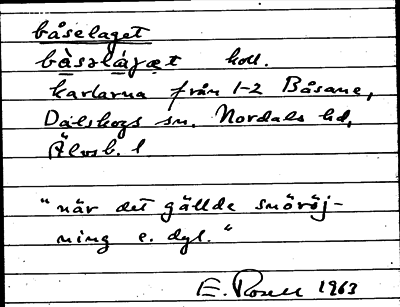 båselaget
bå̀səlá̱gæt koll.
karlarna från 1-2 Båsane,
Dalskogs sn. Nordals hd,
Älvsb. l
"när det gällde snöröj-
ning e. dyl."
E. Rosell 1963